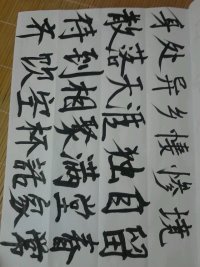 身处异乡悽惨境
散落天涯独自留
待到相聚满堂春
齐空杯話家常